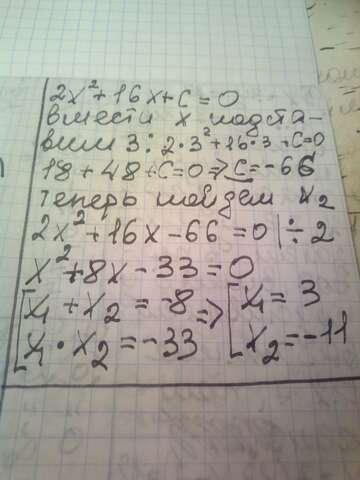 2x² + 16x + C = 0
вместо x подста-
вим 3: 2·3² + 16·3 + C = 0
18 + 48 + C = 0 => C = -66
теперь найдем x₂
2x² + 16x - 66 = 0 | ÷ 2
x² + 8x - 33 = 0
[x₁ + x₂ = -8 => [x₁ = 3
[x₁ · x₂ = -33 [x₂ = -11